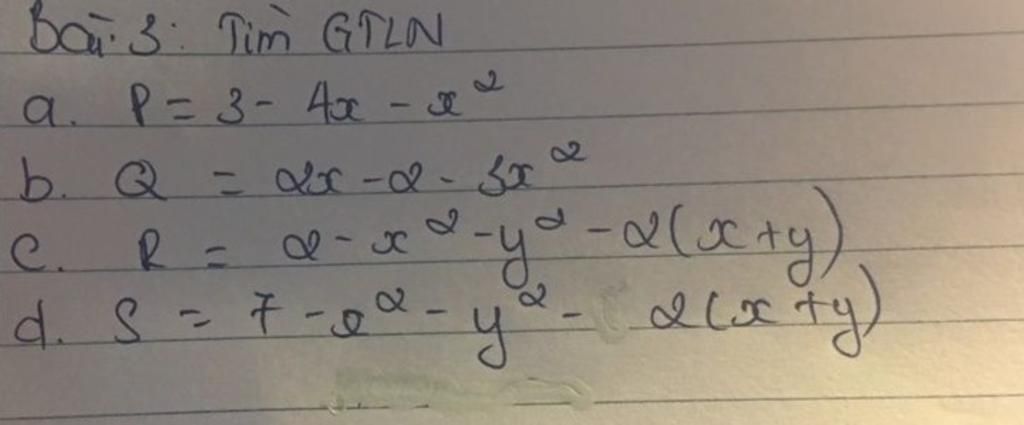 Bài 3: Tìm GTLN
a. P = 3 - 4x - x²
b. Q = 2x - 2 - 3x²
c. R = 2 - x² - y² - 2(x+y)
d. S = 7 - x² - y² - 2(x+y)